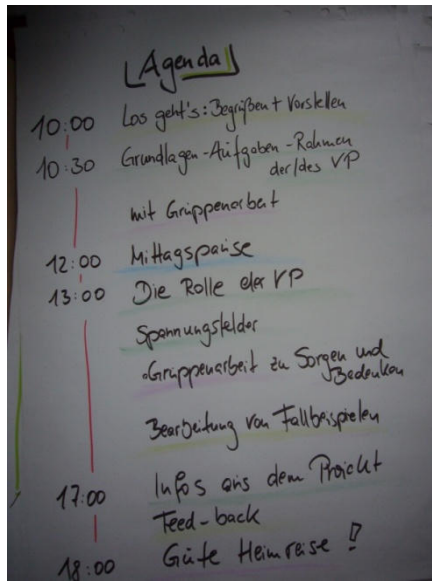 Agenda
10:00 Los geht's: Begrüßen + Vorstellen
10:30 Grundlagen - Aufgaben - Rahmen
der/des VP
mit Gruppenarbeit
12:00 Mittagspause
13:00 Die Rolle der VP
Spannungsfelder
Gruppenarbeit zu Sorgen und
Bedenken
Bearbeitung von Fallbeispielen
17:00 Infos aus dem Projekt
Feed-back
18:00 Gute Heimreise!